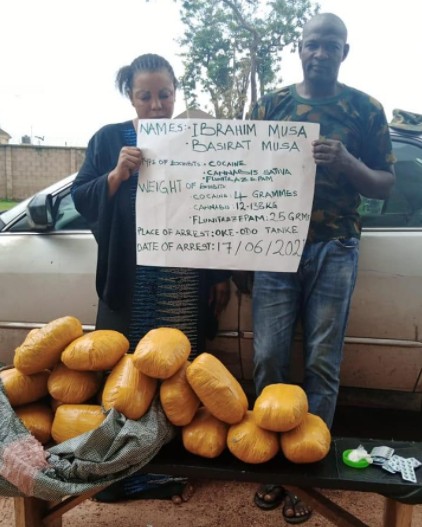 NAMES:- IBRAHIM MUSA
• BASIRAT MUSA
TYPE OF EXHIBITS:• COCAINE
• CANNABIS SATIVA
• FLUNITRAZEPAM
WEIGHT OF EXHIBITS
COCAINE: 4 GRAMMES
CANNABIS 12.135KG
FLUNITRAZEPAM: 25 GRMS
PLACE OF ARREST: OKE-ODO TANKE
DATE OF ARREST: 17/06/202